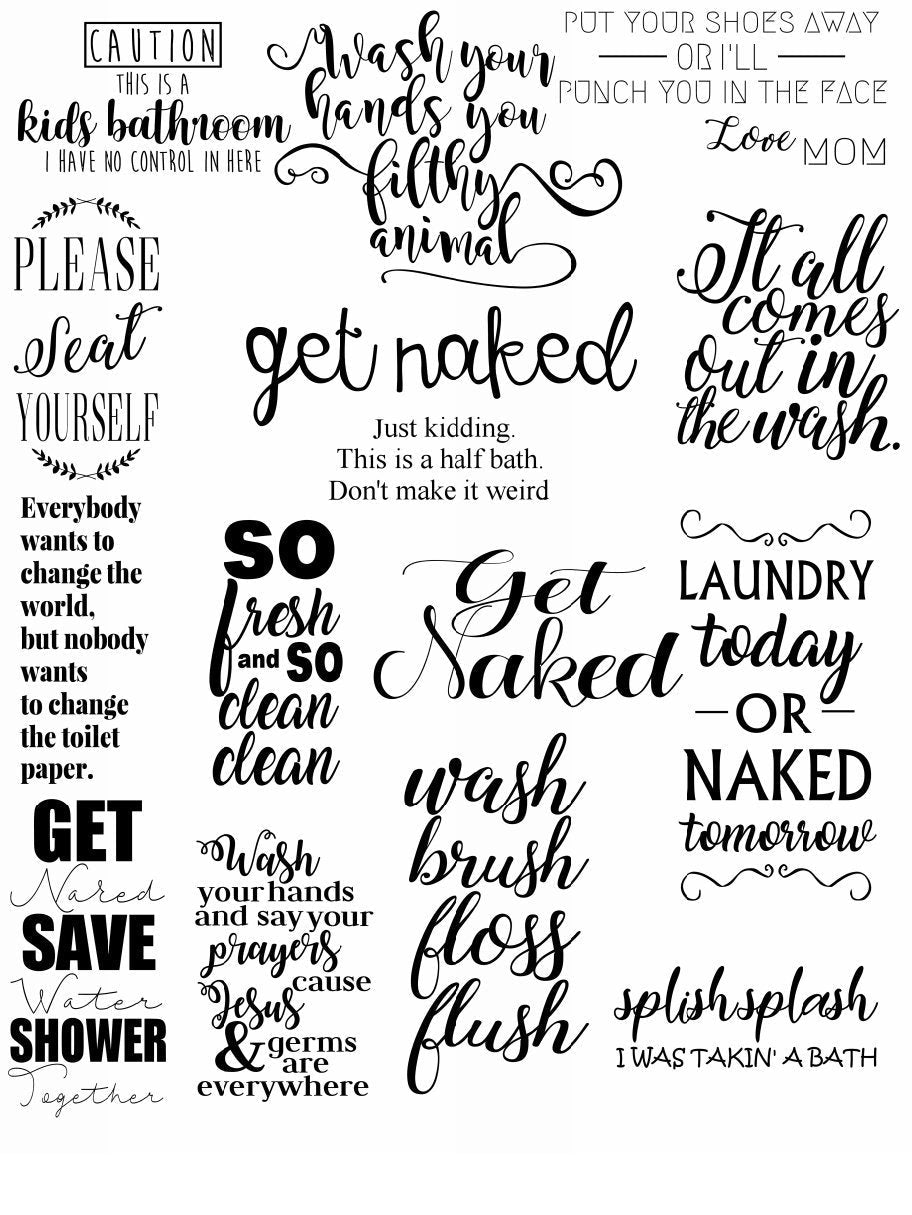 CAUTION
THIS IS A
kids bathroom
I HAVE NO CONTROL IN HERE
Wash your
hands you
filthy
animal
PUT YOUR SHOES AWAY
OR I'LL
PUNCH YOU IN THE FACE
Love MOM
PLEASE
Seat
YOURSELF
get naked
Just kidding.
This is a half bath.
Don't make it weird
It all
comes
out in
the wash.
Everybody
wants to
change the
world,
but nobody
wants
to change
the toilet
paper.
SO
fresh
and SO
clean
clean
Get
Naked
LAUNDRY
today
OR
NAKED
tomorrow
GET
Naked
SAVE
Water
SHOWER
Together
Wash
your hands
and say your
prayers
cause
Jesus
& germs
are
everywhere
wash
brush
floss
flush
splish splash
I WAS TAKIN' A BATH